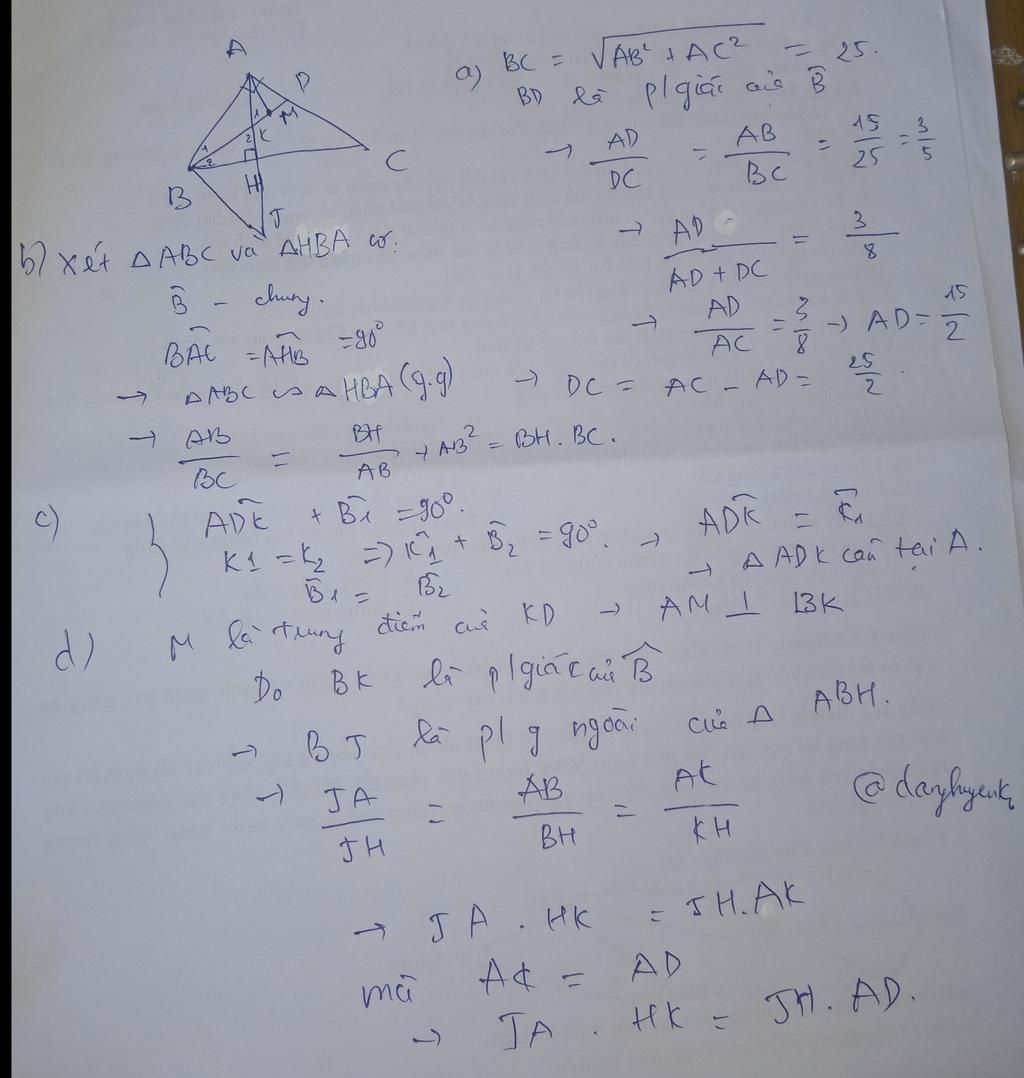 A
D
M
1
K
2
1
2
B
H
C
J
a) BC = √(AB² + AC²) = 25.
BD là p/giác của B̂
→ AD/DC = AB/BC = 15/25 = 3/5
→ AD/(AD + DC) = 3/8
→ AD/AC = 3/8 → AD = 15/2
→ DC = AC - AD = 25/2.
b) Xét △ABC và △HBA có.
B̂ - chung.
BÂC = AĤB = 90°
→ △ABC ∽ △HBA (g.g)
→ AB/BC = BH/AB → AB² = BH.BC.
c) AD̂K + B̂1 = 90°.
K1 = K2 => K̂1 + B̂2 = 90°. → AD̂K = K̂1
B̂1 = B̂2 → △ADK cân tại A.
d) M là trung điểm của KD → AM ⊥ BK
Do BK là p/giác của B̂
→ BJ là p/g ngoài của △ ABH.
→ JA/JH = AB/BH = AK/KH
→ JA . HK = JH.AK
mà AK = AD
→ JA . HK = JH. AD.